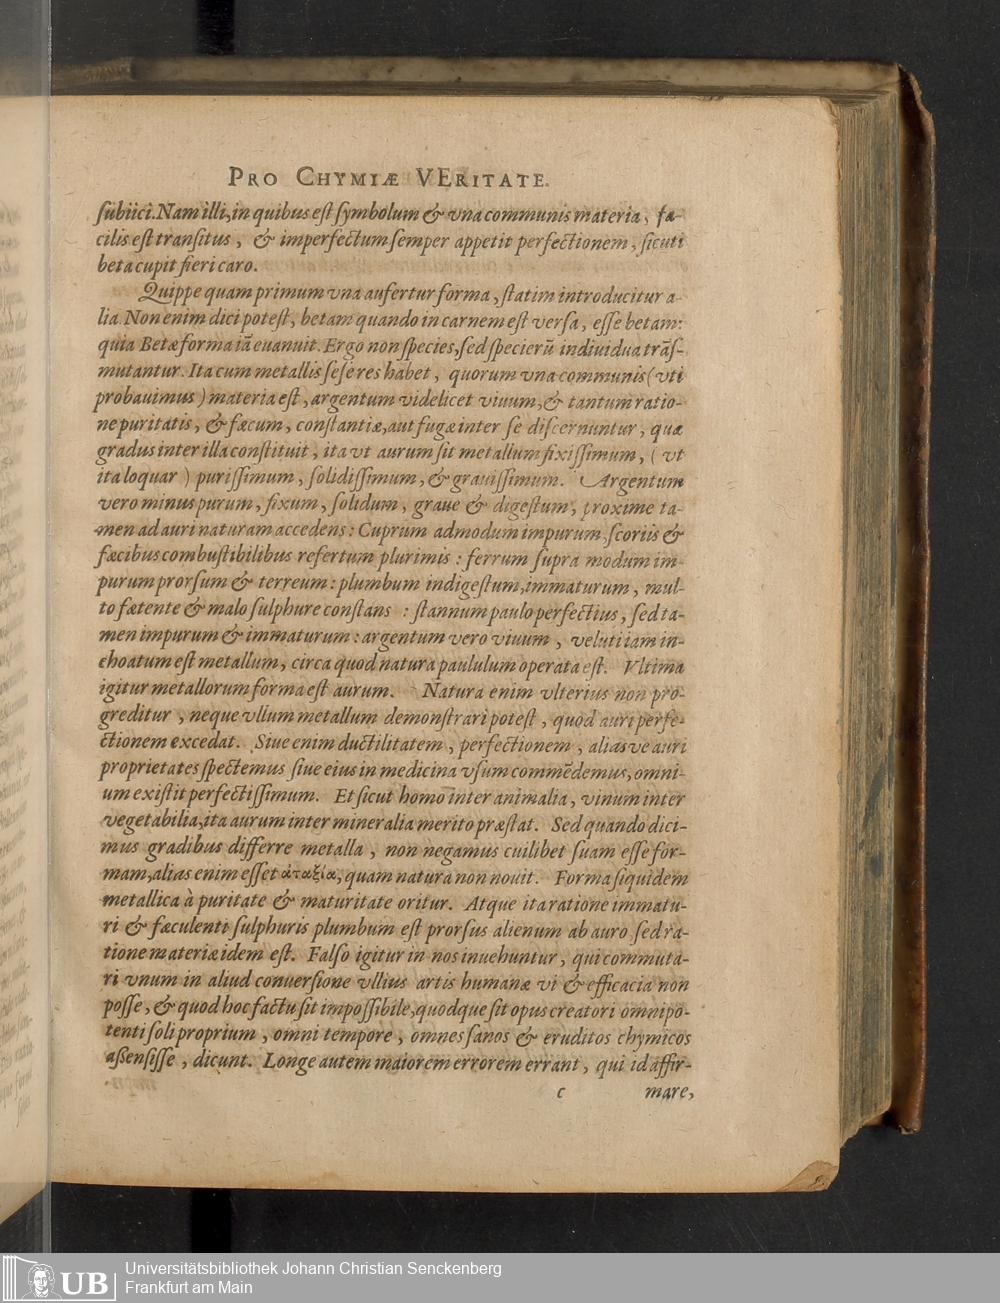 PRO CHYMIÆ VERITATE.
subiici. Nam illi, in quibus est symbolum & vna communis materia, fa-
cilis est transitus, & imperfectum semper appetit perfectionem, sicuti
beta cupit fieri caro.
Quippe quam primum vna aufertur forma, statim introducitur a-
lia. Non enim dici potest, betam quando in carnem est versa, esse betam:
quia Betæ forma iã euanuit. Ergo non species, sed specierũ indiuidua trãs-
mutantur. Ita cum metallis sese res habet, quorum vna communis (vti
probauimus) materia est, argentum videlicet viuum, & tantum ratio-
ne puritatis, & fæcum, constantiæ, aut fugæ inter se discernuntur, quæ
gradus inter illa constituit, ita vt aurum sit metallum fixissimum, (vt
ita loquar) purissimum, solidissimum, & grauissimum. Argentum
vero minus purum, fixum, solidum, graue & digestum, proxime ta-
men ad auri naturam accedens: Cuprum admodum impurum, scoriis &
fæcibus combustibilibus refertum plurimis: ferrum supra modum im-
purum prorsum & terreum: plumbum indigestum, immaturum, mul-
to fætente & malo sulphure constans: stannum paulo perfectius, sed ta-
men impurum & immaturum: argentum vero viuum, veluti iam in-
choatum est metallum, circa quod natura paululum operata est. Vltima
igitur metallorum forma est aurum. Natura enim vlterius non pro-
greditur, neque vllum metallum demonstrari potest, quod auri perfe-
ctionem excedat. Siue enim ductilitatem, perfectionem, aliasve auri
proprietates spectemus siue eius in medicina vsum commẽdemus, omni-
um existit perfectissimum. Et sicut homo inter animalia, vinum inter
vegetabilia, ita aurum inter mineralia merito præstat. Sed quando dici-
mus gradibus differre metalla, non negamus cuilibet suam esse for-
mam, alias enim esset ἀταξία, quam natura non nouit. Forma siquidem
metallica à puritate & maturitate oritur. Atque ita ratione immatu-
ri & fæculenti sulphuris plumbum est prorsus alienum ab auro sed ra-
tione materiæ idem est. Falso igitur in nos inuehuntur, qui commuta-
ri vnum in aliud conuersione vllius artis humanæ vi & efficacia non
posse, & quod hoc factu sit impossibile, quodque sit opus creatori omnipo-
tenti soli proprium, omni tempore, omnes sanos & eruditos chymicos
assensisse, dicunt. Longe autem maiorem errorem errant, qui id affir-
c mare,
UB Universitätsbibliothek Johann Christian Senckenberg
Frankfurt am Main